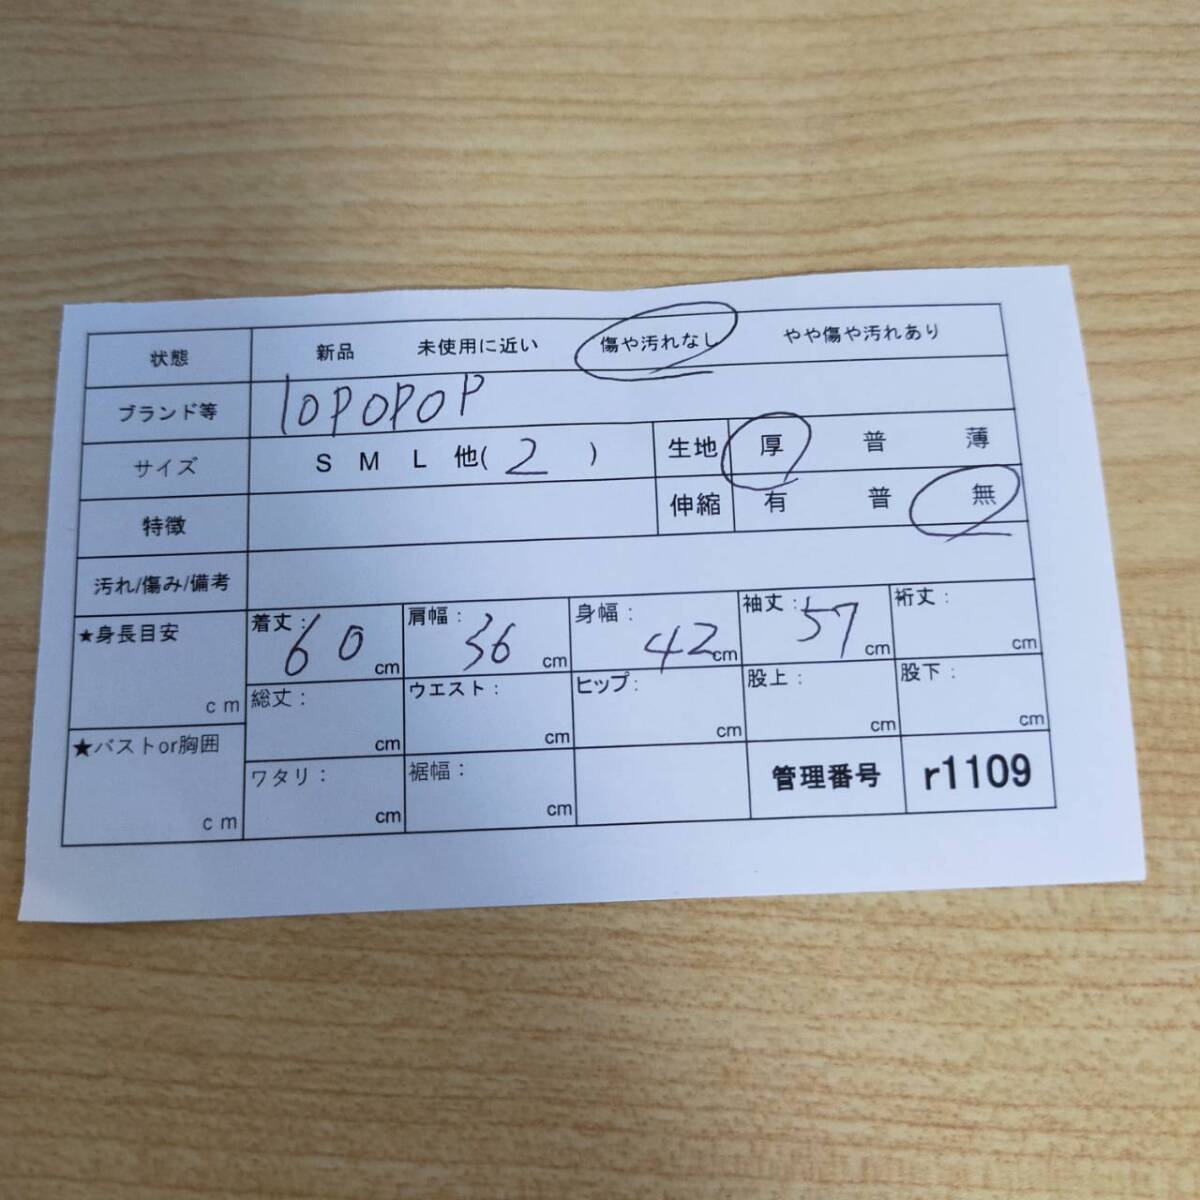 状態 新品 未使用に近い 傷や汚れなし やや傷や汚れあり
ブランド等 lopopop
サイズ S M L 他( 2 ) 生地 厚 普 薄
特徴 伸縮 有 普 無
汚れ/傷み/備考
★身長目安 cm
着丈: 60 cm 肩幅: 36 cm 身幅: 42 cm 袖丈: 57 cm 裄丈: cm
総丈: cm ウエスト: cm ヒップ: cm 股上: cm 股下: cm
★バストor胸囲 cm
ワタリ: cm 裾幅: cm 管理番号 r1109